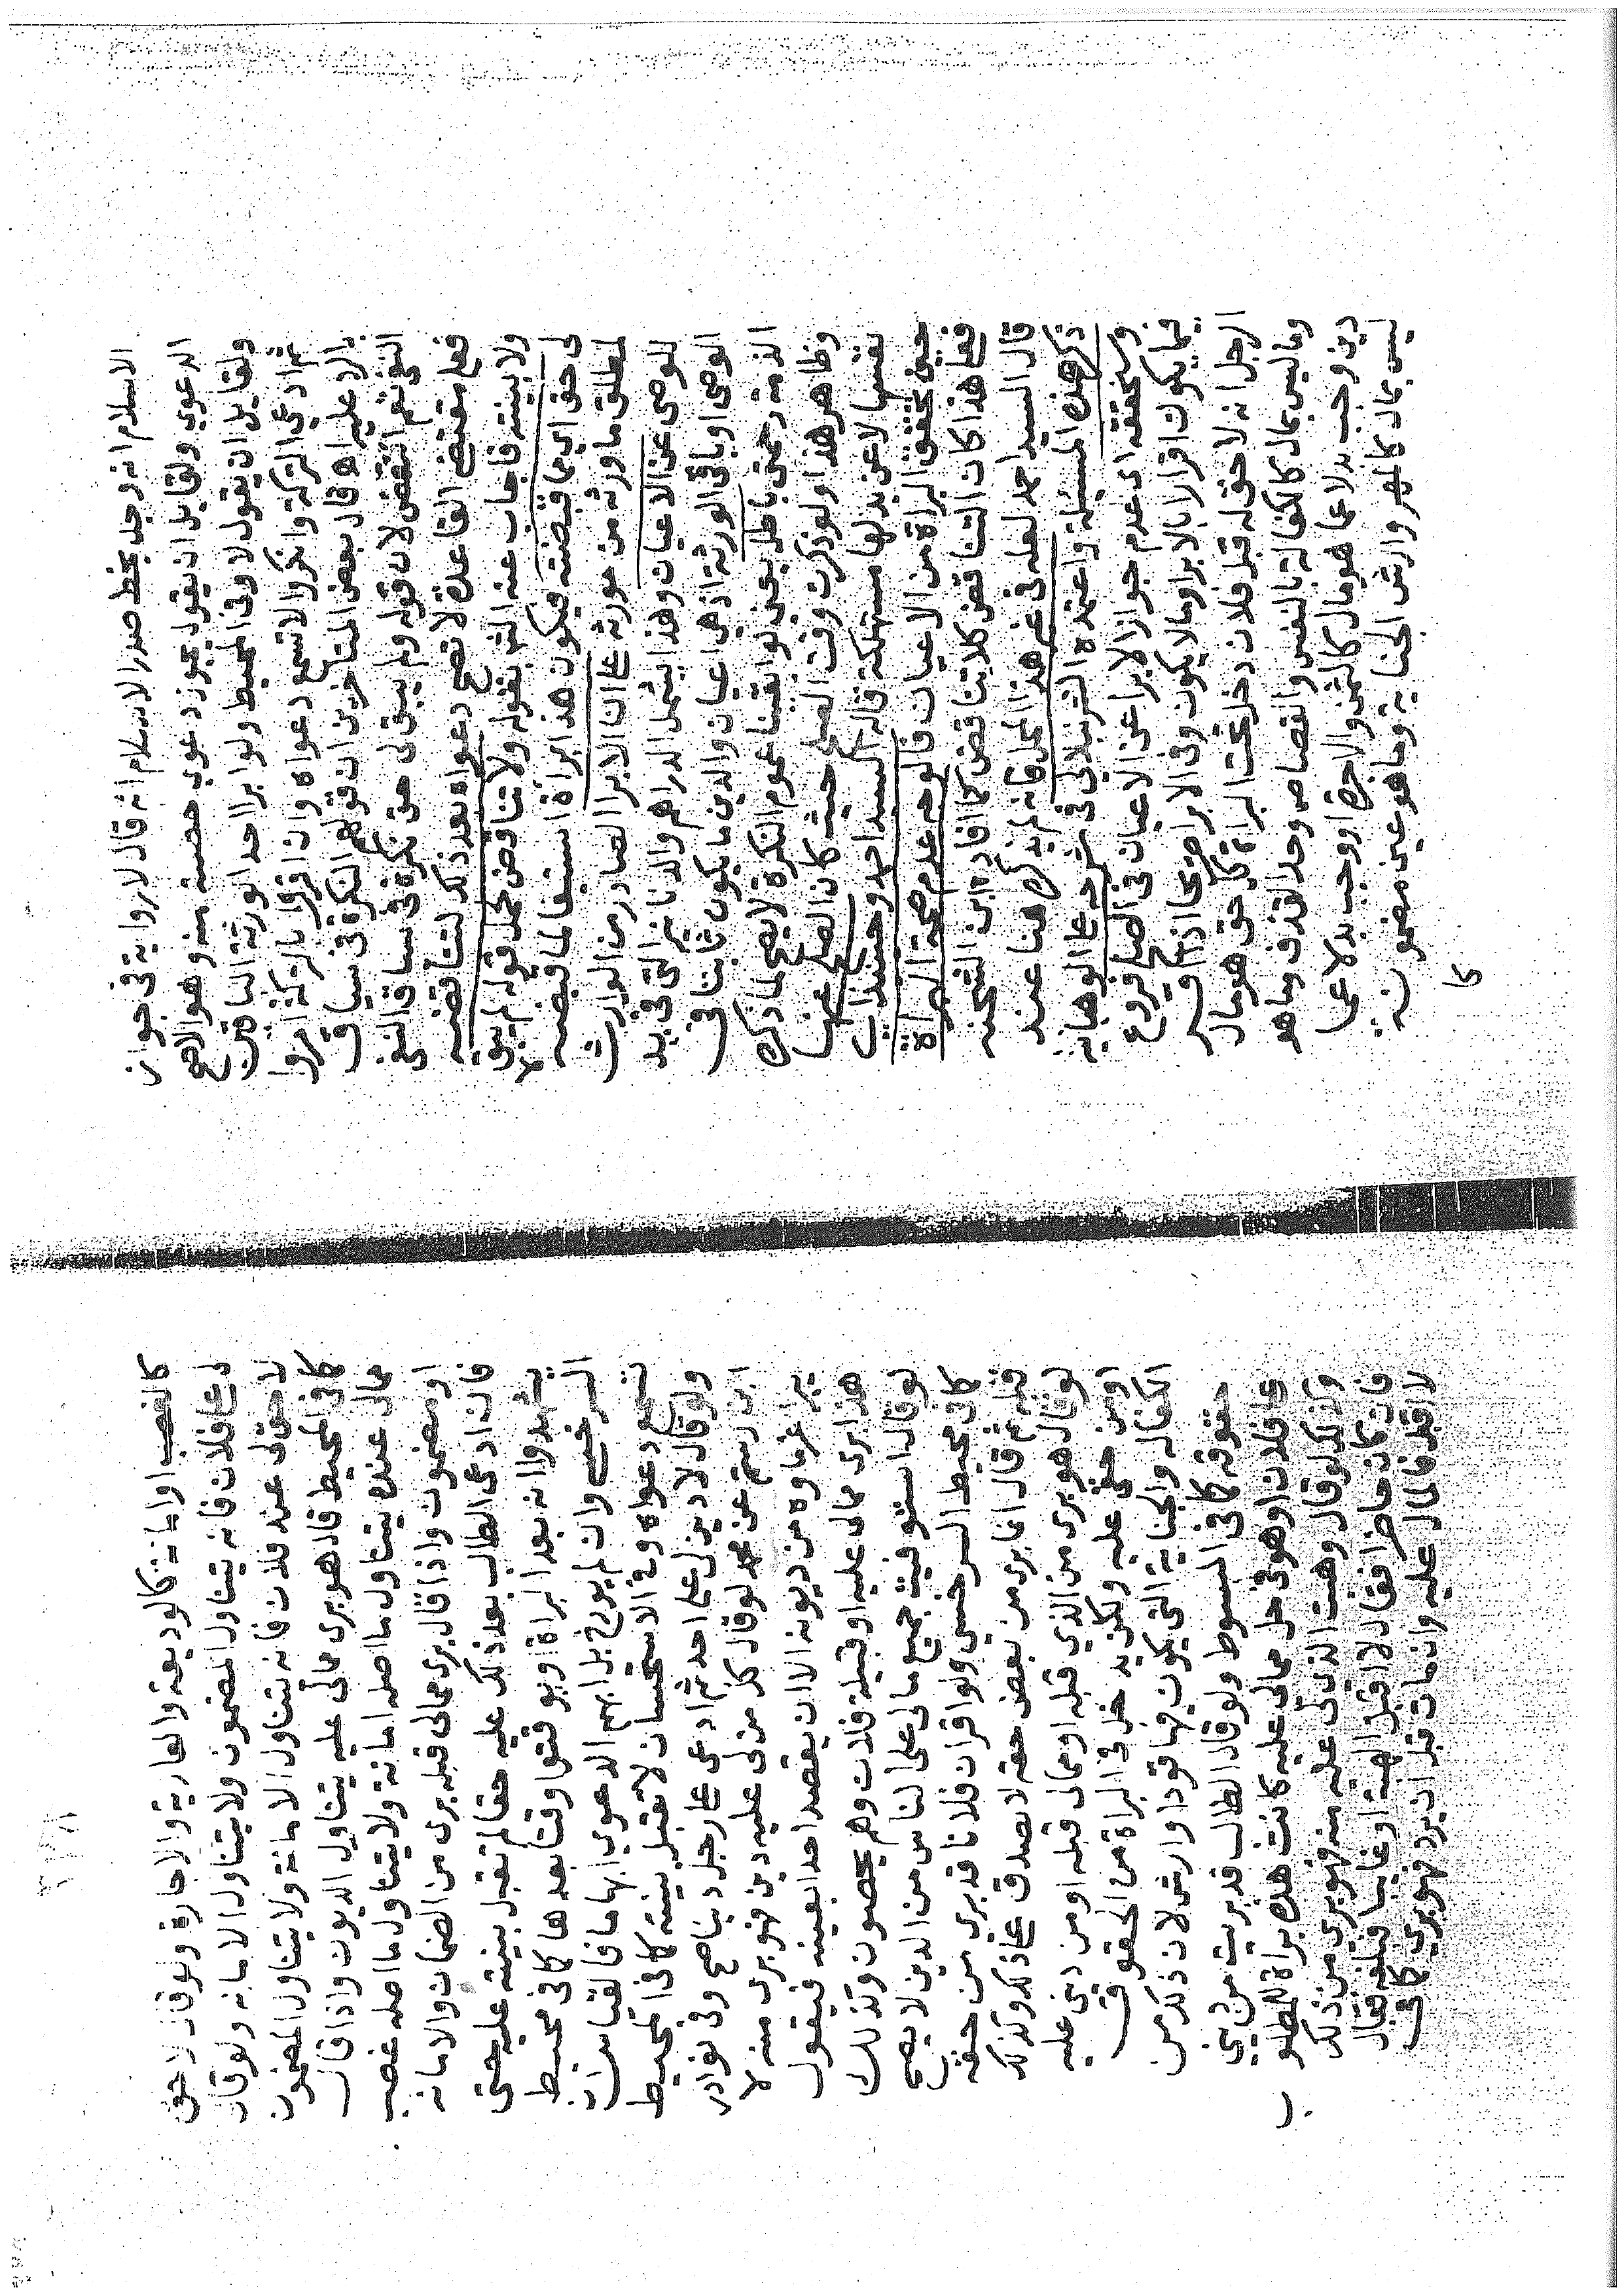 الاسلام انه وجد بخط صدر الاسلام انه قال لا رواية في جواب
الدعوى ولقايل ان يقول يجوز دعوى حصته منه وهو الاصح
ولقايل ان يقول لا وفي المحيط ولو ابرا احد الورثة الباقين
ثم ادعى التركة وانكروا لا تسمع دعواه وان اقروا بالتركة امروا
بالرد عليه اهـ قال بعض المتاخرين ان قولهم النكرة في سياق
النفي تعم انتقض لان قوله ولم يبق لي حق نكرة في سياق النفي
فعلى مقتضى القاعدة لا تصح دعواه بعد ذلك لتناقضه
ولا بينته فاجاب عنه الش بقوله ولا تناقض لحمل قوله لم يبق
لي حق اي مما قبضته فيكون هذا ابراة استيفا لما قبضه
لمطلق ما ورثه من مورثه على ان الابرا الصادر من الوارث
للوصي عن الاعيان وهذا يشمل الدراهم والدنانير التي في يد
الوصي او باقي الورثة اذ هي اعيان والدين ما يكون ثابتا في
الذمة باطل يعني لو ابقينا عموم النكرة لا يصح لما ذكره
وظاهر هذا ولو ذكرت وقت الصلح حيث كان الصلح عنها
نفسها لا عن بدلها مستهلكة قاله السيد احمد وحينئذ اي
حين تحقق البراة من الاعيان فالوجه عدم صحة البراة
فعلى هذا كان التناقض كلا تناقض كما افاده ابن الشحنه
قال السيد احمد لعله في غير هذا المحل فانه لم يذكره هنا عند
ذكر هذه المسئلة واعتمده الشرنبلالي في شرحه على الوهبانية
وسنحققه اي عدم جواز الابرا عن الاعيان في الصلح فروع
فيما يكون اقرارا بالابرا وما لا يكون وفي الابرا صريحا اذا اقر
الرجل انه لا حق له قبل فلان دخل تحت البراة كل حق هو مال
وما ليس بمال كالكفالة بالنفس والقصاص وحد القذف وما هو
دين وجب بدلا عما هو مال كالثمن والاجرة او وجب بدلا عما
ليس بمال كالمهر وارش الجناية وما هو عين مضمونة
كا
كالغصب او امانة كالوديعة والعارية والاجارة ولو قال لا حق
لي على فلان فانه يتناول المضمون ولا يتناول الامانه ولو قال
لا حق لي عند فلان فانه يتناول الامانة ولا يتناول المضمون
كما في المحيط قال هو بري مما لي عليه يتناول الديون واذا قال
مما لي عنده يتناول ما اصله امانة ولا يتناول ما اصله غصب
او مضمون واذا قال بري مما لي قبله بري من الضمان والامانه
فان ادعى الطالب بعد ذلك عليه حقا لم تقبل بينته عليه حتى
يشهدوا انه بعد البراة او يوقتوا وقتا بعدها كما في محيط
السرخسي وان لم يورخ بل ابهم الدعوى ابهاما فالقياس ان
تسمع دعواه وفي الاستحسان لا تقبل بينته كما في المحيط
ولو قال لا دين لي على احد ثم ادعى على رجل دينا صح وفي نوادر
ابن رستم عن محمد لو قال كل من لي عليه دين فهو بري منه لا
يبر غرماوه من ديونه الا ان يقصد احدا بعينه فيقول
هذا بري مما لي عليه او قبيلة فلان وهم يحصون وكذلك
لو قال استوفيت جميع ما لي على الناس من الدين لا يصح
كما في محيط السرخسي ولو اقر ان فلانا قد بري من حقه
قبله ثم قال انما بري من بعض حقه لا يصدق على ذلك وكذلك
لو قال هو بري من الذي قبله او مما لي قبله او من ديني عليه
او من حقي عليه ولكن يدخل في البراة من الحقوق
الكفاله والجناية التي يكون فيها قودا وارش لان ذلك من
حقوقه كما في المبسوط ولو قال الطالب قد بريت من ديني
على فلان او هو في حل مما لي عليه كانت هذه براة للمطلوب
وكذلك لو قال وهبت الذي لي عليه منه فهو بري من ذلك
فان كان حاضرا فقال لا اقبل الهبة او غايبا فبلغه فقال
لا اقبل فالمال عليه وان مات قبل ان يرد فهو بري كما في